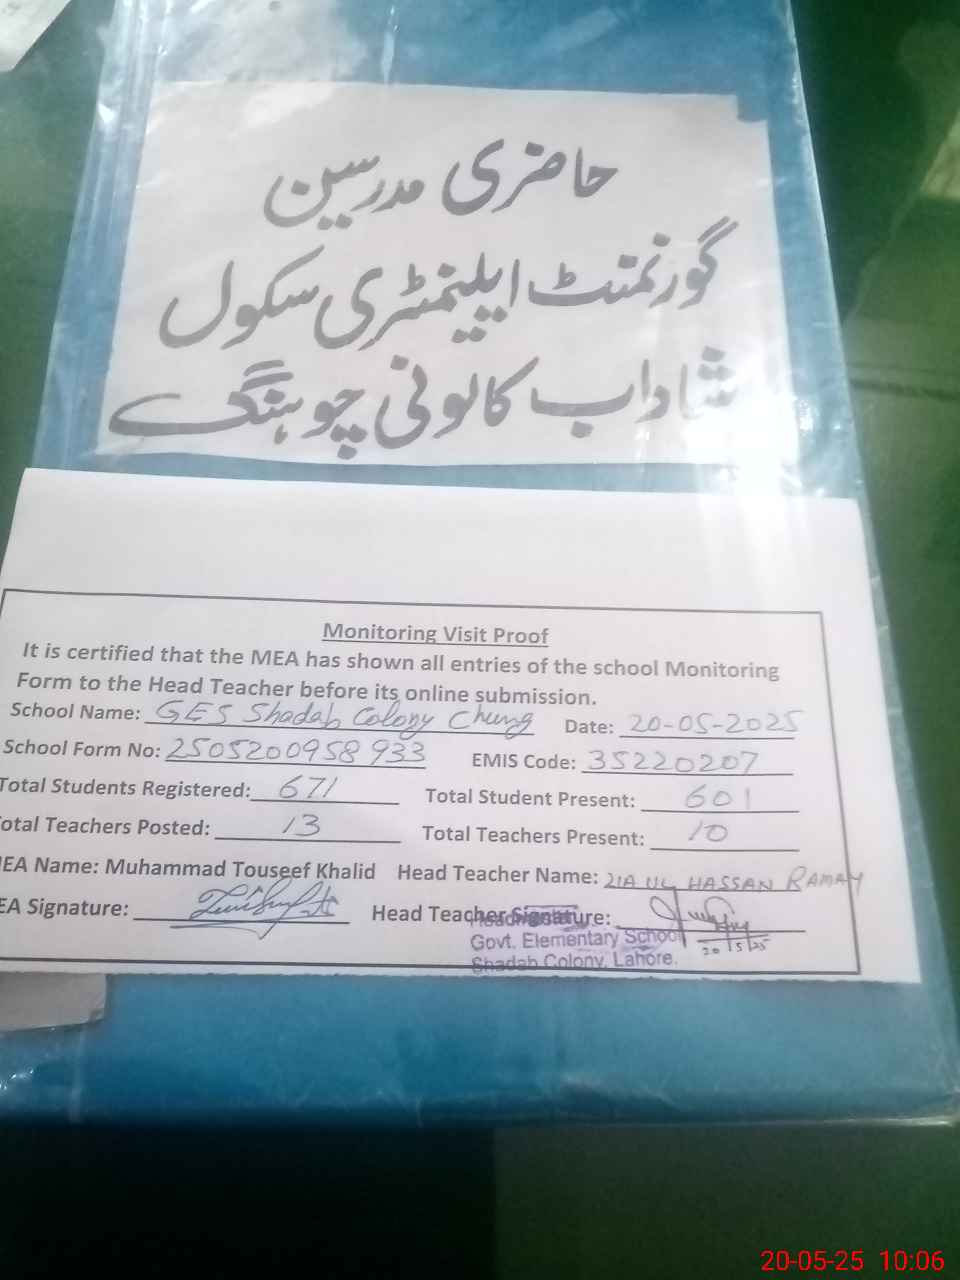 حاضری مدرسین
گورنمنٹ ایلیمنٹری سکول
شاداب کالونی چوہنگ
Monitoring Visit Proof
It is certified that the MEA has shown all entries of the school Monitoring
Form to the Head Teacher before its online submission.
School Name: GES Shadab Colony Chung Date: 20-05-2025
School Form No: 2505200958933 EMIS Code: 35220207
Total Students Registered: 671 Total Student Present: 601
Total Teachers Posted: 13 Total Teachers Present: 10
MEA Name: Muhammad Touseef Khalid Head Teacher Name: ZIA UL HASSAN RAMAY
EA Signature: Head Teacher Signature:
20/5/25
Govt. Elementary School
Shadab Colony, Lahore.
20-05-25 10:06